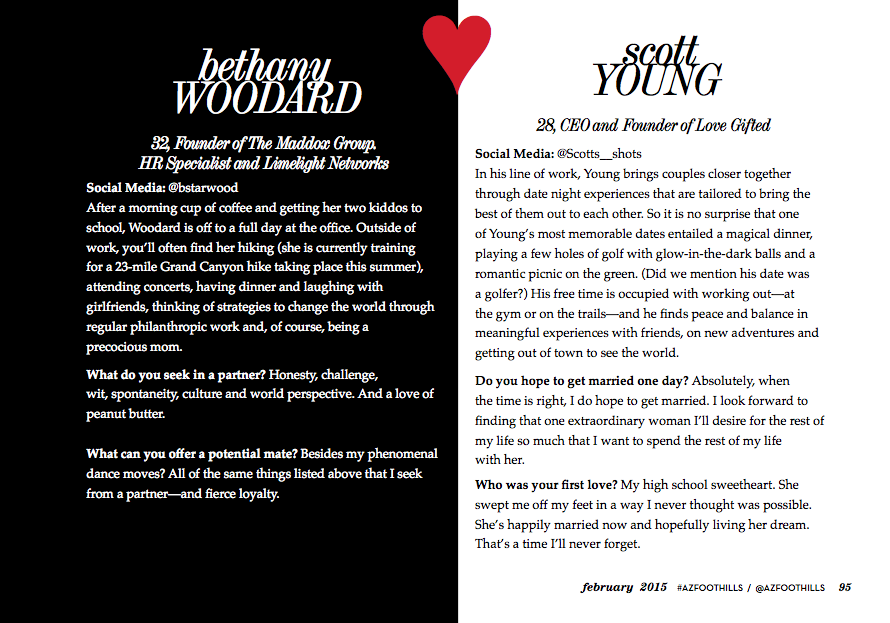 bethany
WOODARD
32, Founder of The Maddox Group.
HR Specialist and Limelight Networks
Social Media: @bstarwood
After a morning cup of coffee and getting her two kiddos to
school, Woodard is off to a full day at the office. Outside of
work, you’ll often find her hiking (she is currently training
for a 23-mile Grand Canyon hike taking place this summer),
attending concerts, having dinner and laughing with
girlfriends, thinking of strategies to change the world through
regular philanthropic work and, of course, being a
precocious mom.
What do you seek in a partner? Honesty, challenge,
wit, spontaneity, culture and world perspective. And a love of
peanut butter.
What can you offer a potential mate? Besides my phenomenal
dance moves? All of the same things listed above that I seek
from a partner—and fierce loyalty.
scott
YOUNG
28, CEO and Founder of Love Gifted
Social Media: @Scotts__shots
In his line of work, Young brings couples closer together
through date night experiences that are tailored to bring the
best of them out to each other. So it is no surprise that one
of Young’s most memorable dates entailed a magical dinner,
playing a few holes of golf with glow-in-the-dark balls and a
romantic picnic on the green. (Did we mention his date was
a golfer?) His free time is occupied with working out—at
the gym or on the trails—and he finds peace and balance in
meaningful experiences with friends, on new adventures and
getting out of town to see the world.
Do you hope to get married one day? Absolutely, when
the time is right, I do hope to get married. I look forward to
finding that one extraordinary woman I’ll desire for the rest of
my life so much that I want to spend the rest of my life
with her.
Who was your first love? My high school sweetheart. She
swept me off my feet in a way I never thought was possible.
She’s happily married now and hopefully living her dream.
That’s a time I’ll never forget.
february 2015 #AZFOOTHILLS / @AZFOOTHILLS 95